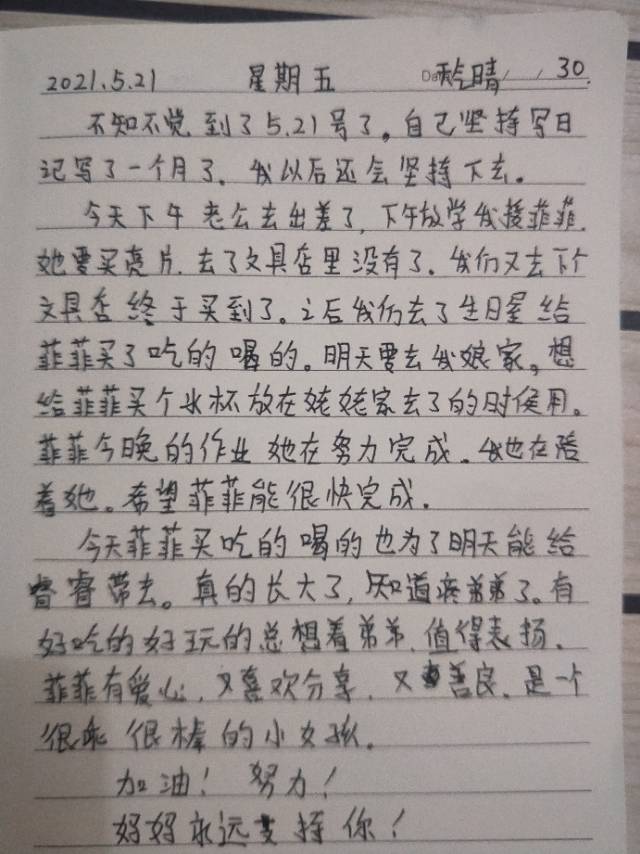 2021.5.21 星期五 Da 天气晴 30
不知不觉到了5.21号了。自己坚持写日
记写了一个月了。我以后还会坚持下去。
今天下午老公去出差了,下午放学我接菲菲,
她要买亮片,去了文具店里没有了。我们又去下个
文具店终于买到了。之后我们去了生日星给
菲菲买了吃的喝的。明天要去我娘家,想
给菲菲买个水杯放在姥姥家去了的时侯用。
菲菲今晚的作业她在努力完成。我也在陪
着她。希望菲菲能很快完成。
今天菲菲买吃的喝的也为了明天能给
睿睿带去。真的长大了,知道疼弟弟了。有
好吃的好玩的总想着弟弟,值得表扬。
菲菲有爱心,又喜欢分享,又善良,是一个
很乖很棒的小女孩。
加油!努力!
妈妈永远支持你!